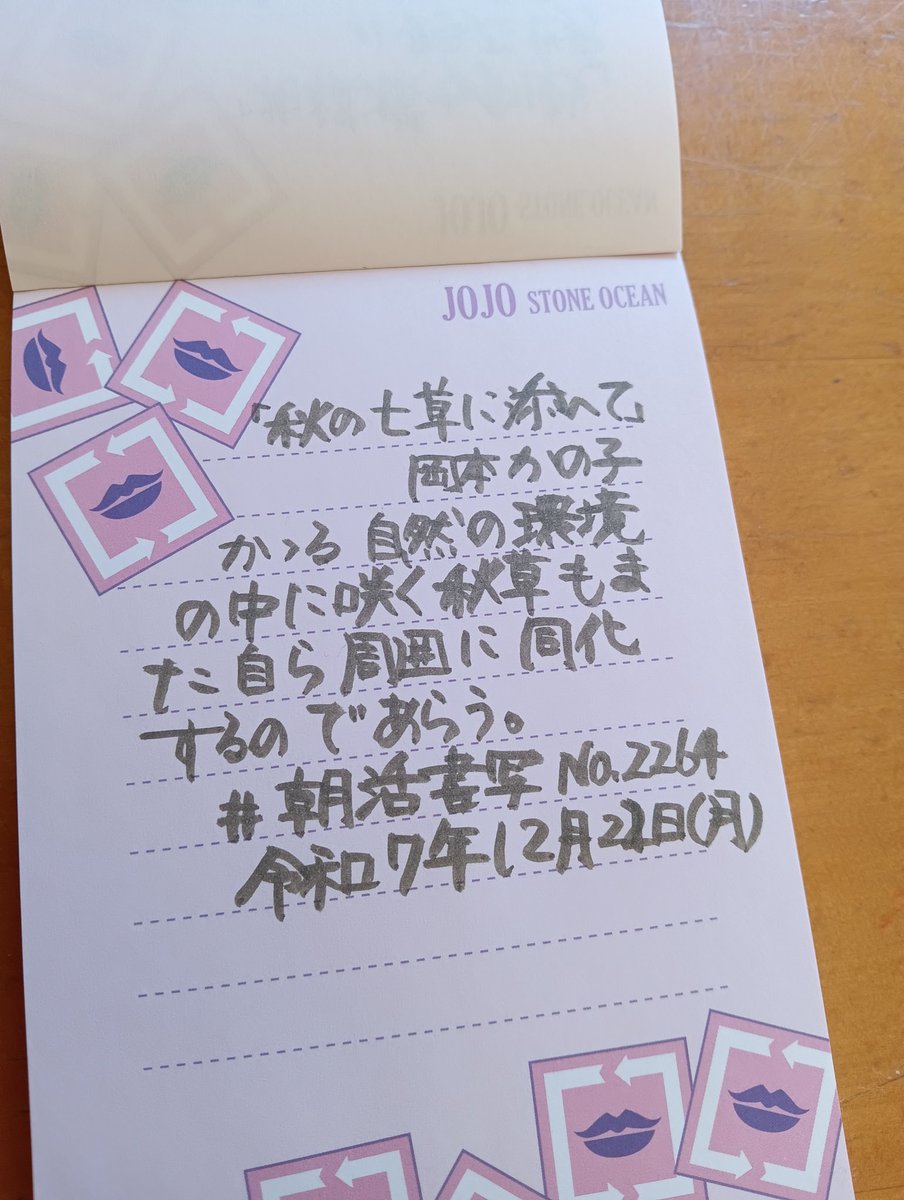 JOJO STONE OCEAN
「秋の七草に添へて」
岡本かの子
かゝる自然の環境
の中に咲く秋草もま
た自ら周囲に同化
するのであらう。
#朝活書写 No.2264
令和7年12月22日(月)